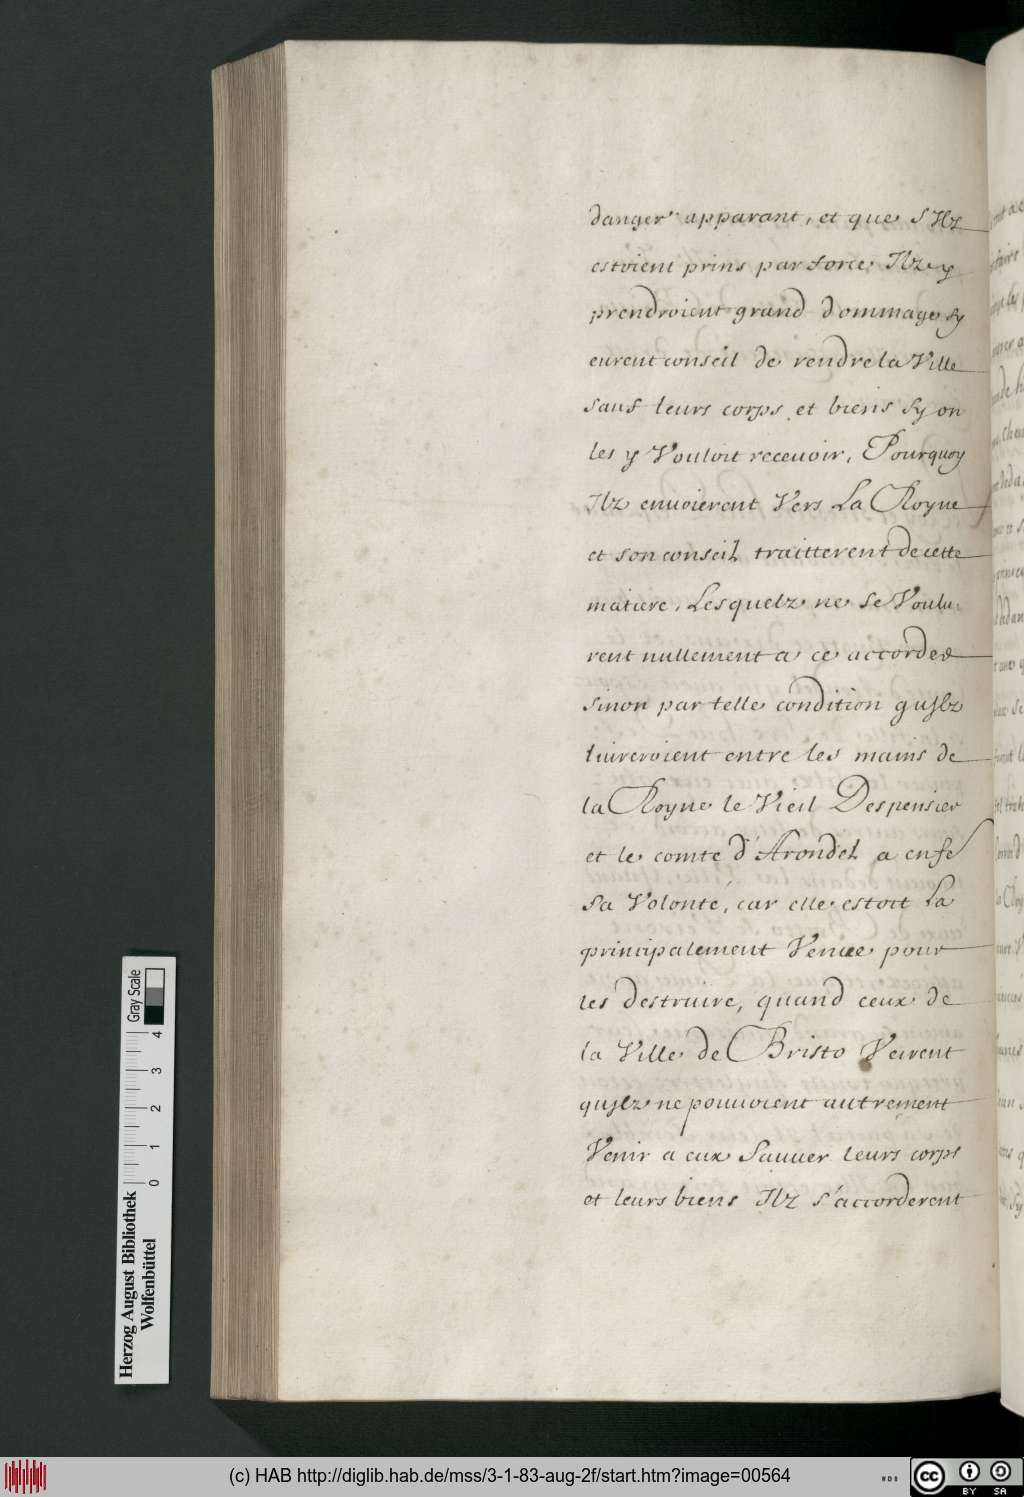 danger apparant, et que s'Ilz
estoient prins par force Ilz y
prendroient grand dommage sy
eurent conseil de rendre la Ville
sauf leurs corps et biens sy on
les y Vouloit recevoir, Pourquoy
Ilz envoierent Vers La Royne
et son conseil traitterent de cette
matiere, Lesquelz ne se Voulu-
rent nullement a ce accorder
sinon par telle condition qu'Ilz
livreroient entre les mains de
la Royne le Vieil Despensier
et le comte d'Arondel a en fe
sa Volonté, car elle estoit La
principalement Venue pour
les destruire, quand ceux de
la Ville de Bristo Veirent
qu'Ilz ne pouvoient autrement
Venir a eux Sauver leurs corps
et leurs biens Ilz s'accorderent
Herzog August Bibliothek
Wolfenbüttel
Gray Scale
0 1 2 3 4
(c) HAB http://diglib.hab.de/mss/3-1-83-aug-2f/start.htm?image=00564
WDB
cc BY SA